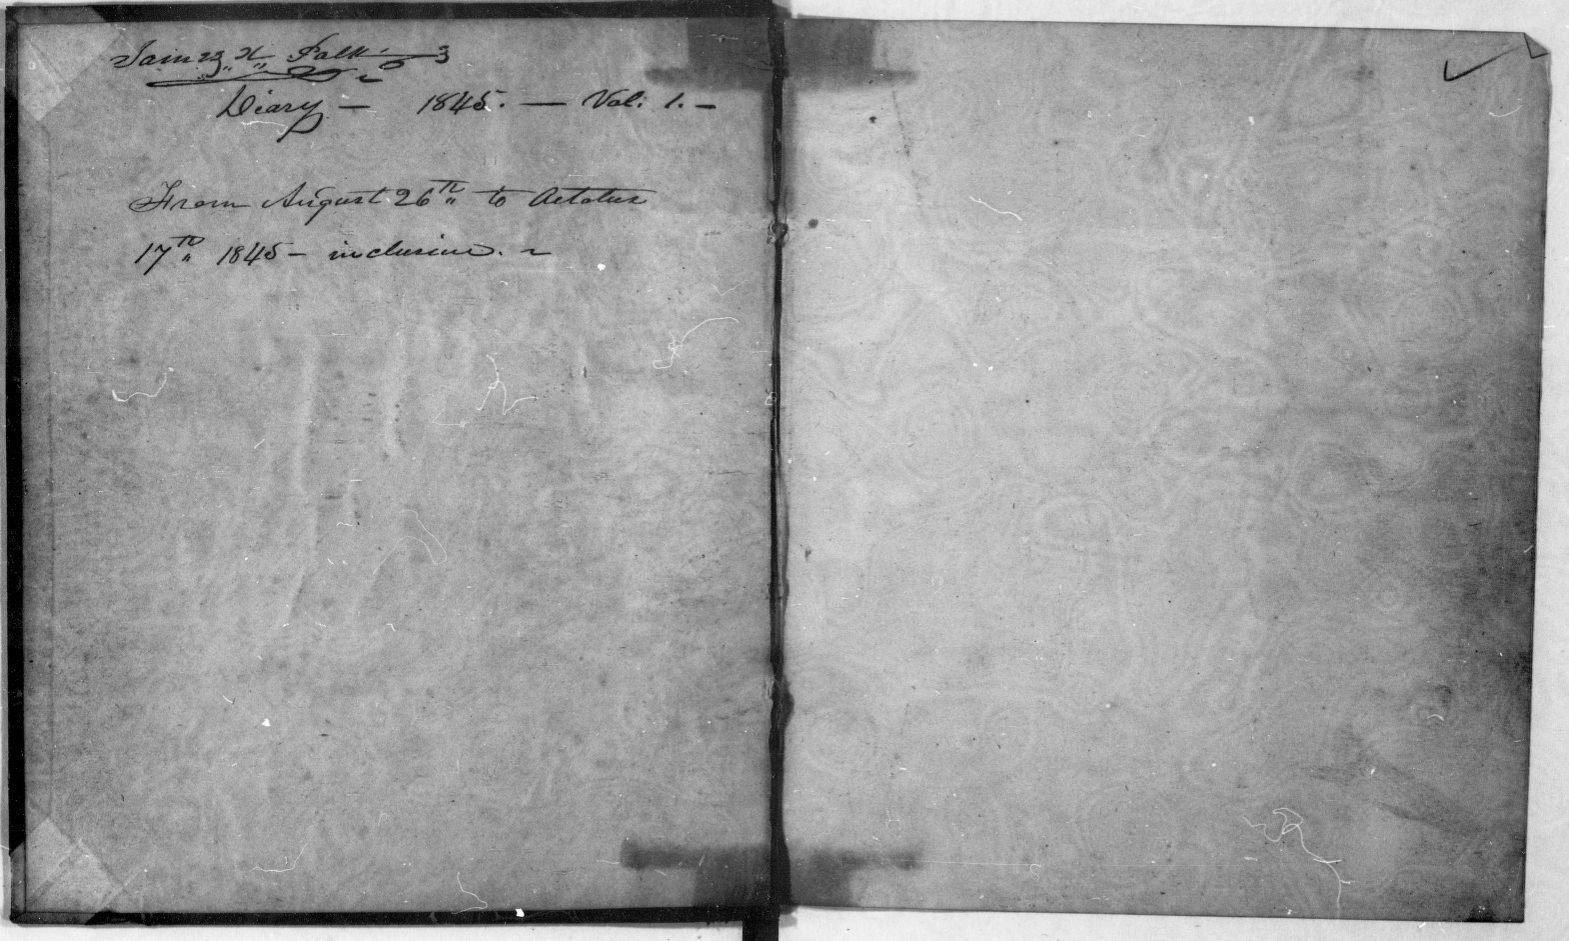 James K. Polk's
Diary — 1845. — Vol: 1. —
From August 26th to October
17th 1845 — inclusive. ~